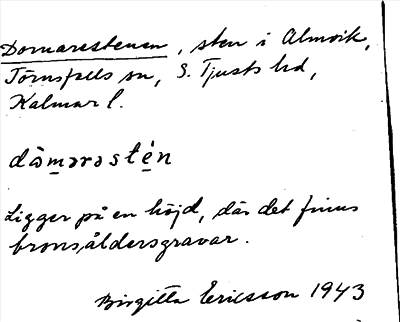 Domarestenen, sten i Almvik,
Törnsfalls sn, S. Tjusts hd,
Kalmar l.
dȯmarastén
Ligger på en höjd, där det finns
bronsåldersgravar.
Birgitta Ericsson 1943